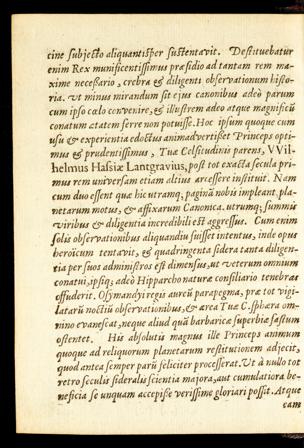 cine subjecto aliquantisper sustentavit. Destituebatur
enim Rex munificentissimus præsidio ad tantam rem ma-
xime necessario, crebra & diligenti observationum histo-
ria. Ut minus mirandum sit ejus canonibus adeò parum
cum ipso cœlo convenire, & illustrem adeo atque magnificũ
conatum ætatem ferre non potuisse. Hoc ipsum quoque cum
usu & experientia edoctus animadvertisset Princeps opti-
mus & prudentissimus, Tuæ Celsitudinis parens, VVil-
helmus Hassiæ Lantgravius, post tot exacta secula pri-
mus rem universam etiam altius arcessere instituit. Nam
cum duo essent quæ hic utramq; paginũ nobis impleant, pla-
netarum motus, & affixarum Canonica. utrumq; summis
viribus & diligentia incredibili est aggressus. Cum enim
solis observationibus aliquandiu fuisset intentus, inde opus
heroicum tentavit, & quadringenta sidera tanta diligen-
tia per suos administros est dimensus, ut veterum omnium
conatui, ipsiq; adeò Hipparcho naturæ consiliario tenebras
offuderit. Osymandyi regis aureũ parapegma, præ tot vigi-
latarũ noctiũ observationibus, & area Tuæ C. sphæra om-
nino evanescat, neque aliud quã barbaricæ superbiæ fastum
ostentet. His absolutis magnus ille Princeps animum
quoque ad reliquorum planetarum restitutionem adjecit,
quod antea semper parũ feliciter processerat. Ut à nullo tot
retro seculis sideralis scientia majora, aut cumulatiora be-
neficia se unquam accepisse verissime gloriari possit. Atque
eam